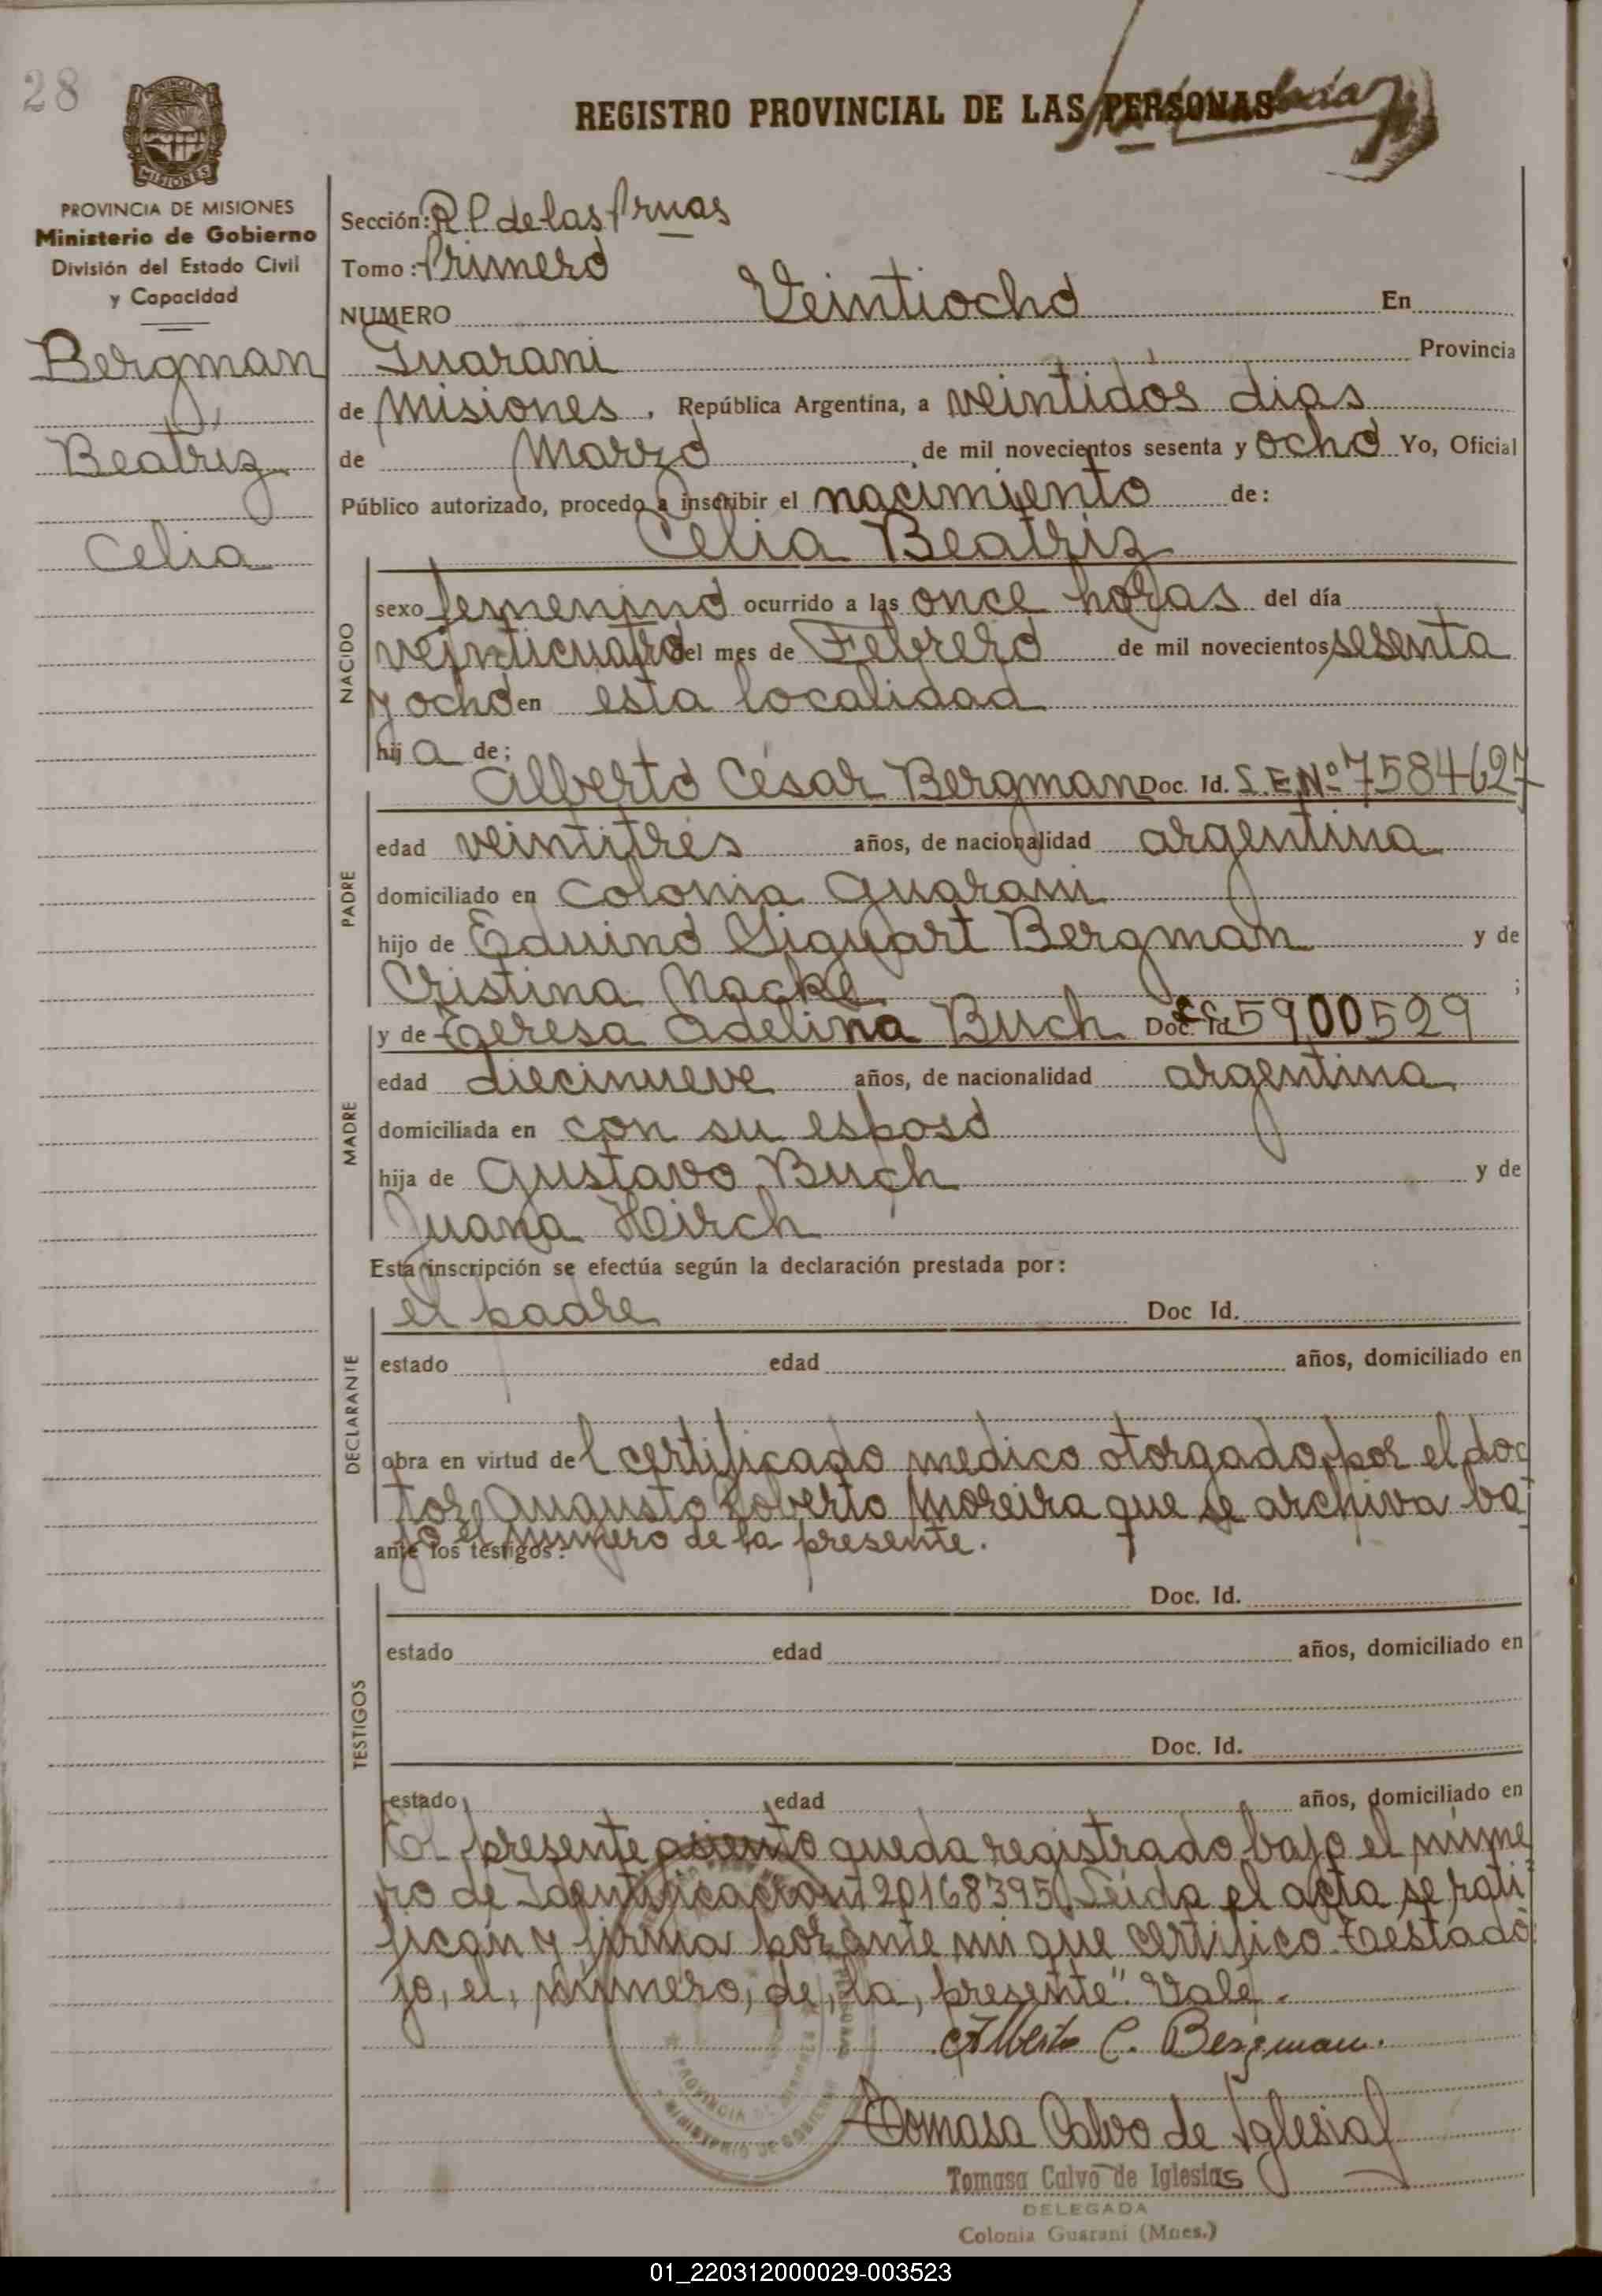 28
REGISTRO PROVINCIAL DE LAS PERSONAS
PROVINCIA DE MISIONES
Ministerio de Gobierno
División del Estado Civil
y Capacidad
Bergman
Beatriz
Celia
Sección: R. P. de las Prnas
Tomo: Primero
NUMERO Veintiocho En
Guarani Provincia
de Misiones, República Argentina, a veintidós dias
de Marzo de mil novecientos sesenta y ocho Yo, Oficial
Público autorizado, procedo a inscribir el nacimiento de:
Celia Beatriz
NACIDO
sexo femenino ocurrido a las once horas del día
veinticuatro del mes de Febrero de mil novecientos sesenta
y ocho en esta localidad
hija de:
PADRE
Alberto César Bergman Doc. Id. L.E.Nº 7584627
edad veintitrés años, de nacionalidad argentina
domiciliado en Colonia Guarani
hijo de Eduino Siguart Bergman y de
Cristina Nacke ;
MADRE
y de Teresa Adelina Buch Doc. Id. 5900529
edad diecinueve años, de nacionalidad argentina
domiciliada en con su esposo
hija de Gustavo Buch y de
Juana Hirch
Esta inscripción se efectúa según la declaración prestada por:
DECLARANTE
el padre Doc Id.
estado edad años, domiciliado en
obra en virtud del certificado medico otorgado por el doc
tor Augusto Roberto Moreira que se archiva ba
jo el número de la presente.
ante los testigos:
TESTIGOS
Doc. Id.
estado edad años, domiciliado en
Doc. Id.
estado edad años, domiciliado en
El presente queda registrado bajo el núme
ro de Identificación 20168395. Leida el acta se rati
fican y firma por ante mi que certifico. Testado
jo, el, número, de, la, presente". Vale.
Alberto C. Bergman.
Tomasa Calvo de Iglesias
Tomasa Calvo de Iglesias
DELEGADA
Colonia Guaraní (Mnes.)
PROVINCIA DE MISIONES
MINISTERIO DE GOBIERNO
01_220312000029-003523